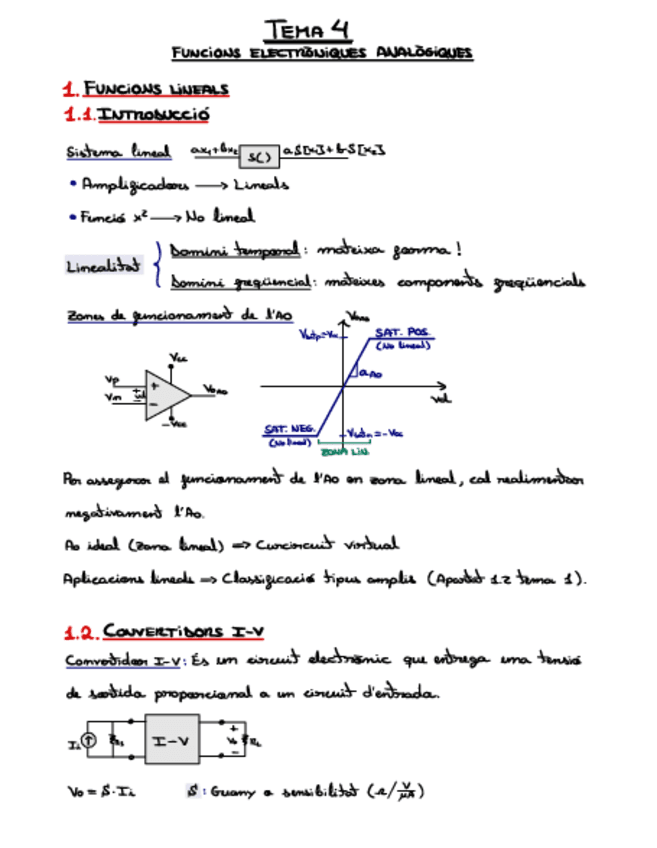 TEMA 4
FUNCIONS ELECTRÒNIQUES ANALÒGIQUES
1. FUNCIONS LINEALS
1.1. INTRODUCCIÓ
Sistema lineal ax₁+bx₂ S() aS[x₁]+bS[x₂]
• Amplificadors → Lineals
• Funció x² → No lineal
Linealitat
Domini temporal: mateixa forma!
Domini freqüencial: mateixes components freqüencials
Zones de funcionament de l'AO
VoAO
SAT. POS.
(No lineal)
aAO
Vcc
Vp
Vm
+
-
vd
VoAO
-Vcc
vd
SAT. NEG.
(No lineal)
=-Vcc
ZONA LIN.
Per assegurar el funcionament de l'AO en zona lineal, cal realimentar
negativament l'AO.
AO ideal (zona lineal) => Curcircuit virtual
Aplicacions lineals => Classificació tipus amplis (Apartat 1.2 tema 1).
1.2. CONVERTIDORS I-V
Convertidor I-V: És un circuit electrònic que entrega una tensió
de sortida proporcional a un circuit d'entrada.
Ii
I-V
+
Vo
-
RL
Vo = S·Ii S: Guany o sensibilitat (Ω/V/μA)